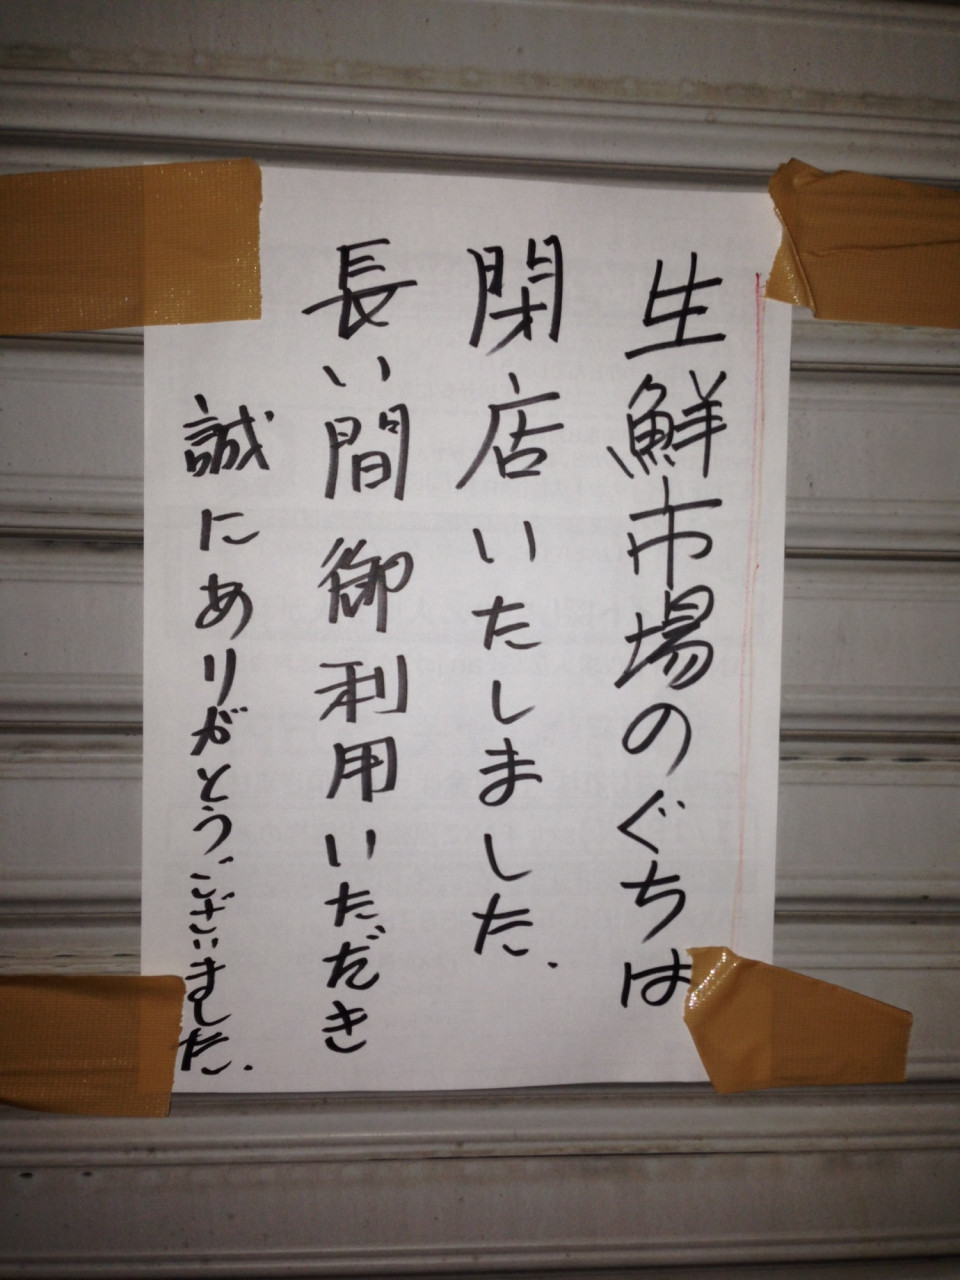 生鮮市場のぐちは
閉店いたしました.
長い間御利用いただき
誠にありがとうございました.